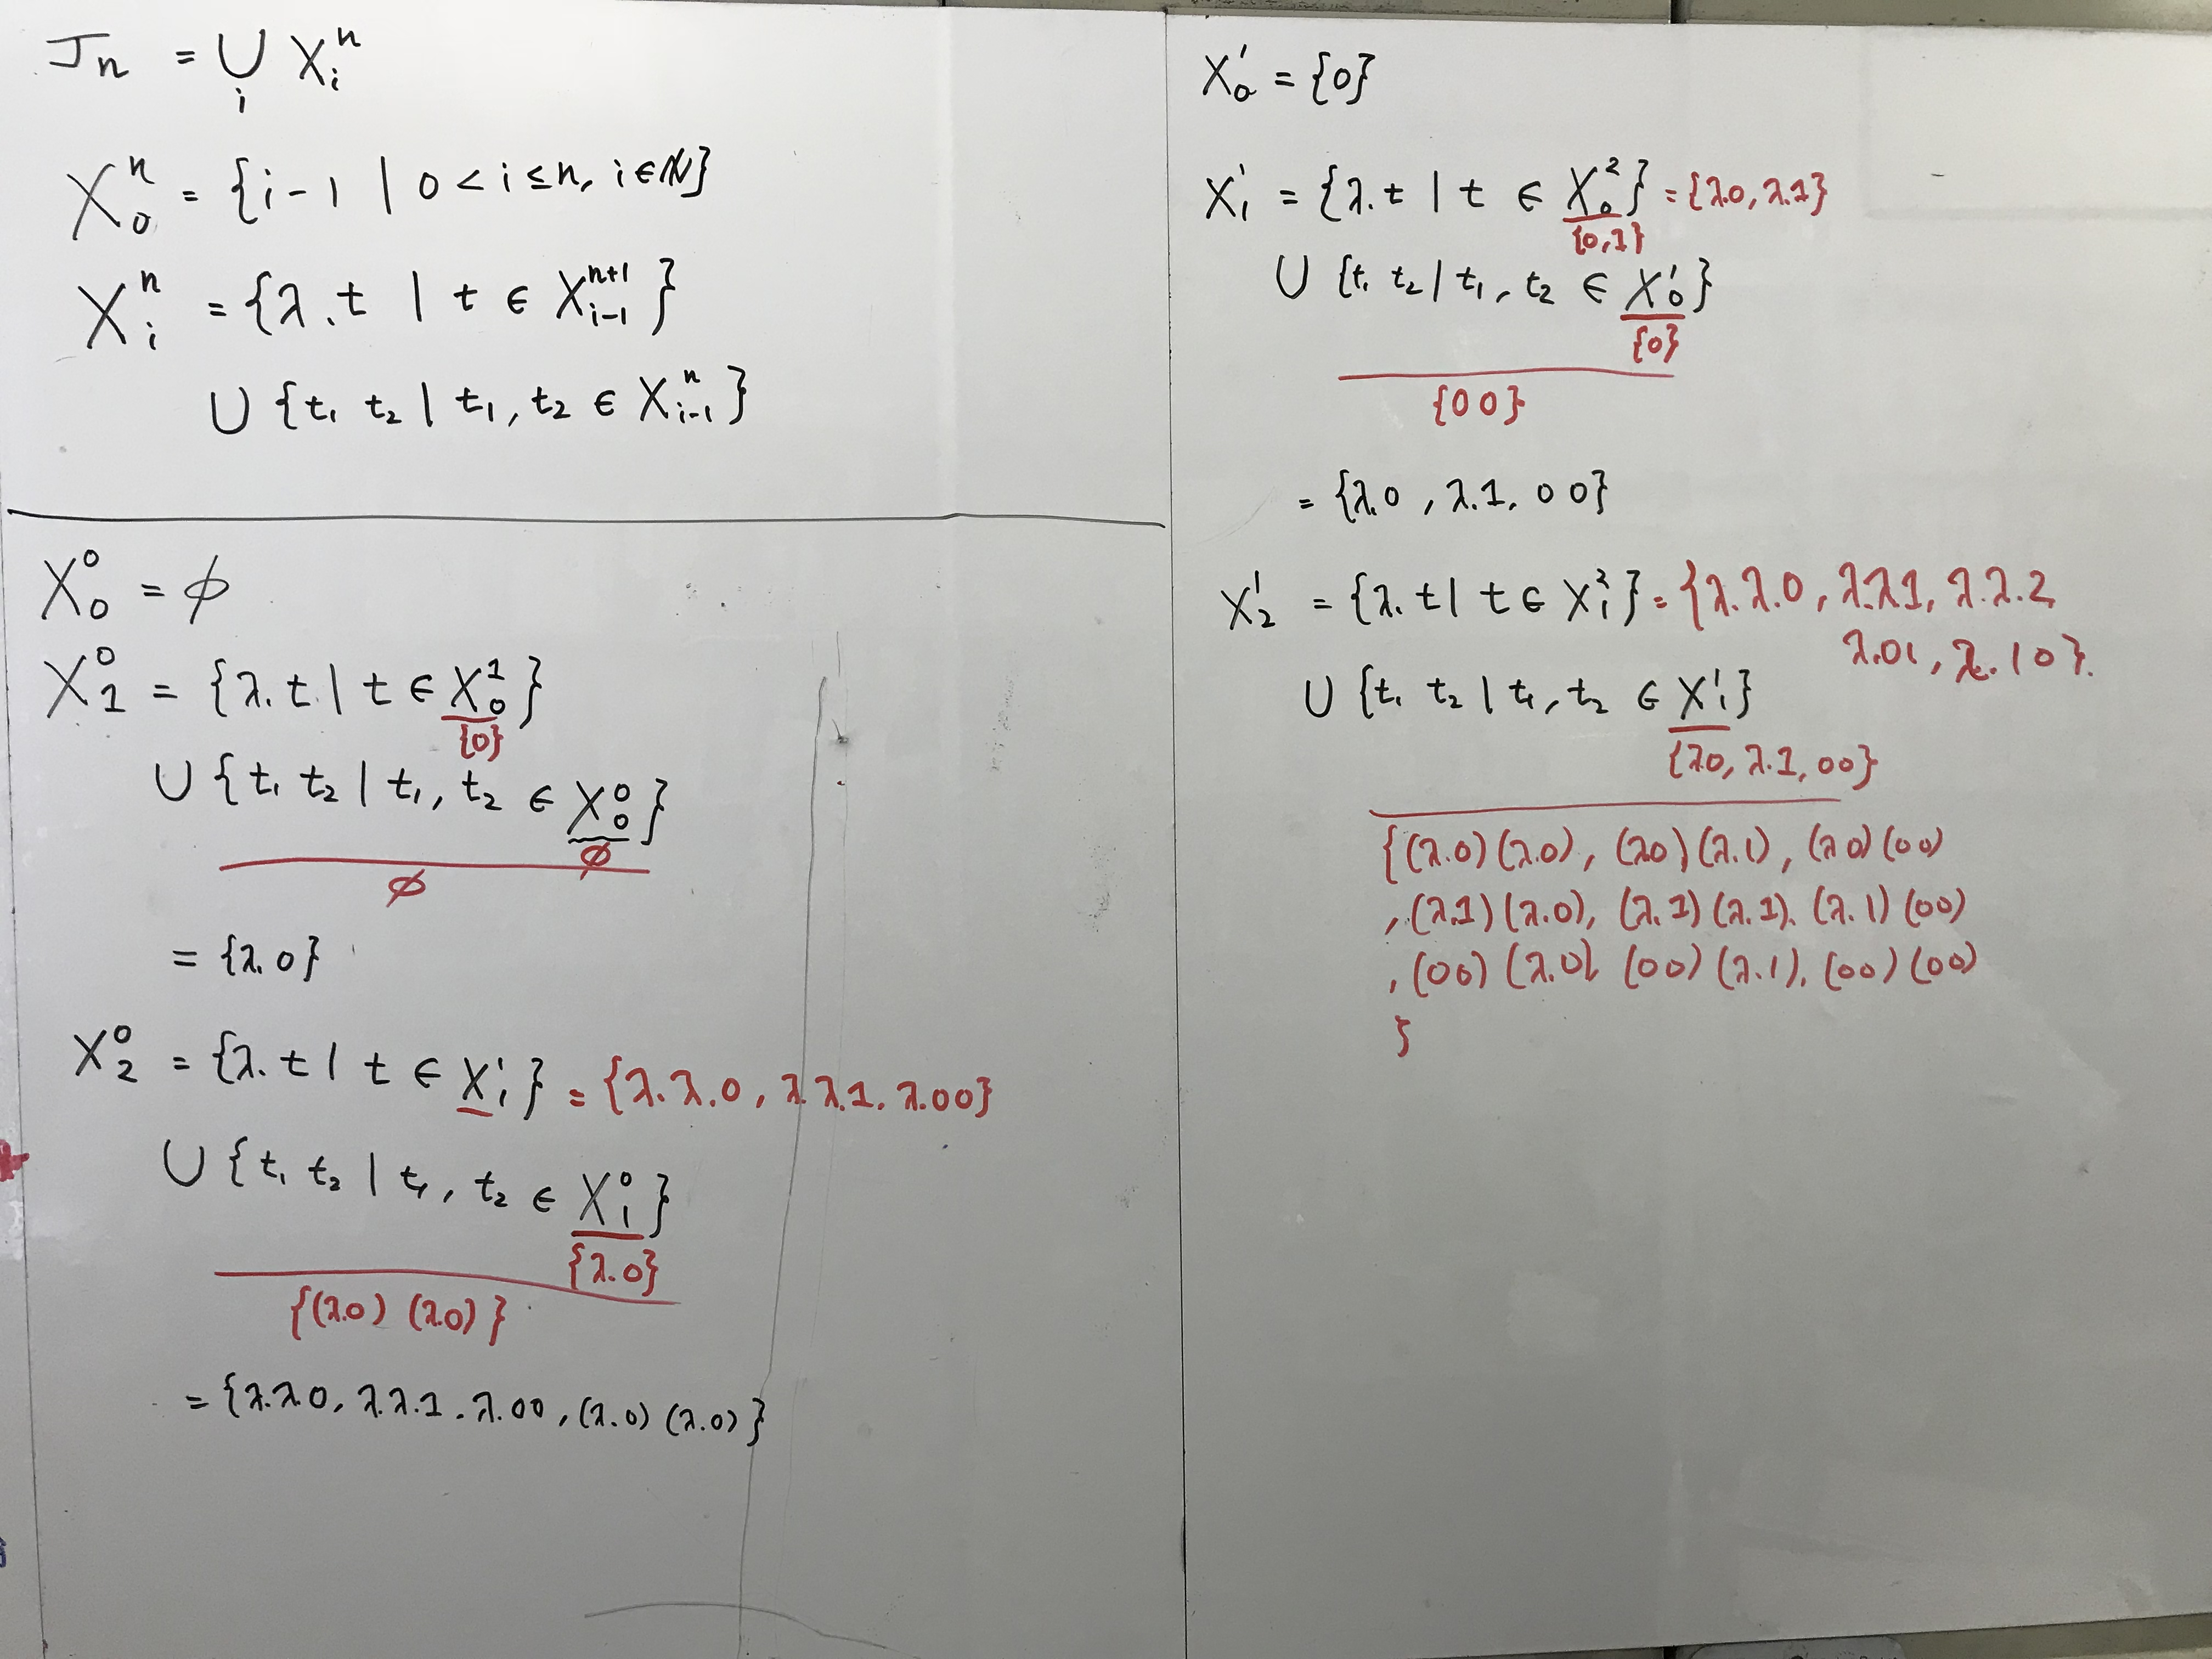 Jn = ∪ Xᵢⁿ
i
X₀ⁿ = {i-1 | 0 < i ≤ n, i ∈ ℕ}
Xᵢⁿ = {λ.t | t ∈ Xᵢ₋₁ⁿ⁺¹}
∪ {t₁ t₂ | t₁, t₂ ∈ Xᵢ₋₁ⁿ}
X₀⁰ = ϕ
X₁⁰ = {λ.t | t ∈ X₀¹}
{0}
∪ {t₁ t₂ | t₁, t₂ ∈ X₀⁰}
ϕ
ϕ
= {λ.0}
X₂⁰ = {λ.t | t ∈ X₁¹} = {λ.λ.0, λ.λ.1, λ.00}
∪ {t₁ t₂ | t₁, t₂ ∈ X₁⁰}
{λ.0}
{(λ0) (λ0)}
= {λ.λ0, λ.λ.1, λ.00, (λ.0) (λ.0)}
X₀¹ = {0}
X₁¹ = {λ.t | t ∈ X₀²} = {λ.0, λ.1}
{0,1}
∪ {t₁ t₂ | t₁, t₂ ∈ X₀¹}
{0}
{00}
= {λ.0, λ.1, 00}
X₂¹ = {λ.t | t ∈ X₁²} = {λ.λ.0, λ.λ1, λ.λ.2,
λ.01, λ.10}.
∪ {t₁ t₂ | t₁, t₂ ∈ X₁¹}
{λ0, λ.1, 00}
{(λ.0)(λ.0), (λ0)(λ.1), (λ0)(00)
,(λ1)(λ.0), (λ.1)(λ.1), (λ.1)(00)
,(00)(λ.0), (00)(λ.1), (00)(00)
}